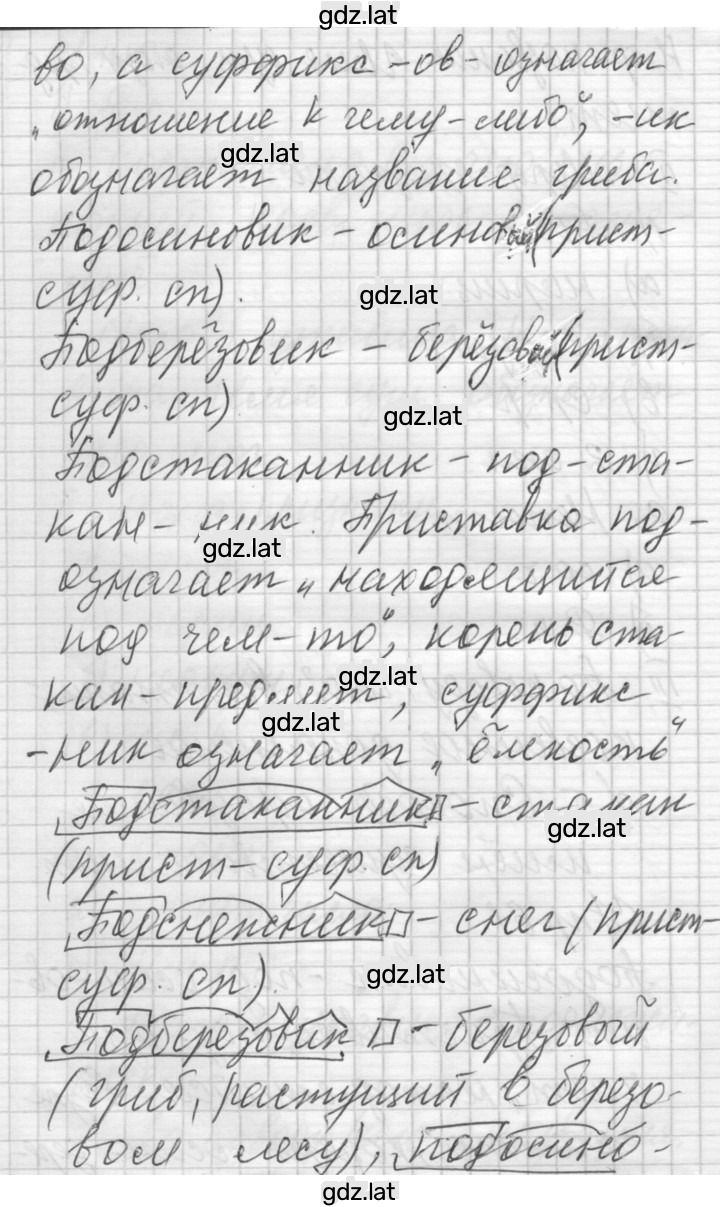 gdz.lat
во, а суффикс -ов- означает
„отношение к чему-либо", -ик
gdz.lat
обозначает название гриба.
Подосиновик - осиновый (прист-
суф. сп).
gdz.lat
Подберёзовик - берёзовый (прист-
суф. сп)
gdz.lat
Подстаканник - под-ста-
кан- ник. Приставка под-
gdz.lat
означает „находящийся
под чем-то", корень ста-
gdz.lat
кан - предмет, суффикс
gdz.lat
-ник означает „ёмкость"
Подстаканник - стакан
gdz.lat
(прист-суф. сп)
Подснежник - снег (прист-
суф. сп).
gdz.lat
Подберезовик - березовый
(гриб, растущий в березо-
вом лесу), подосино-
gdz.lat